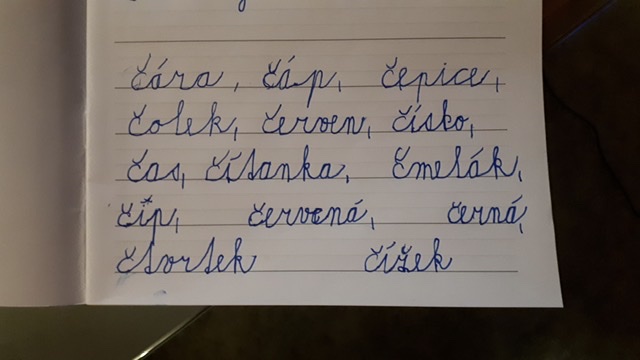 čára, čáp, čepice,
čolek, červen, čísko,
čas, čítanka, čmelák,
čip, červená, černá,
čtvrtek čížek